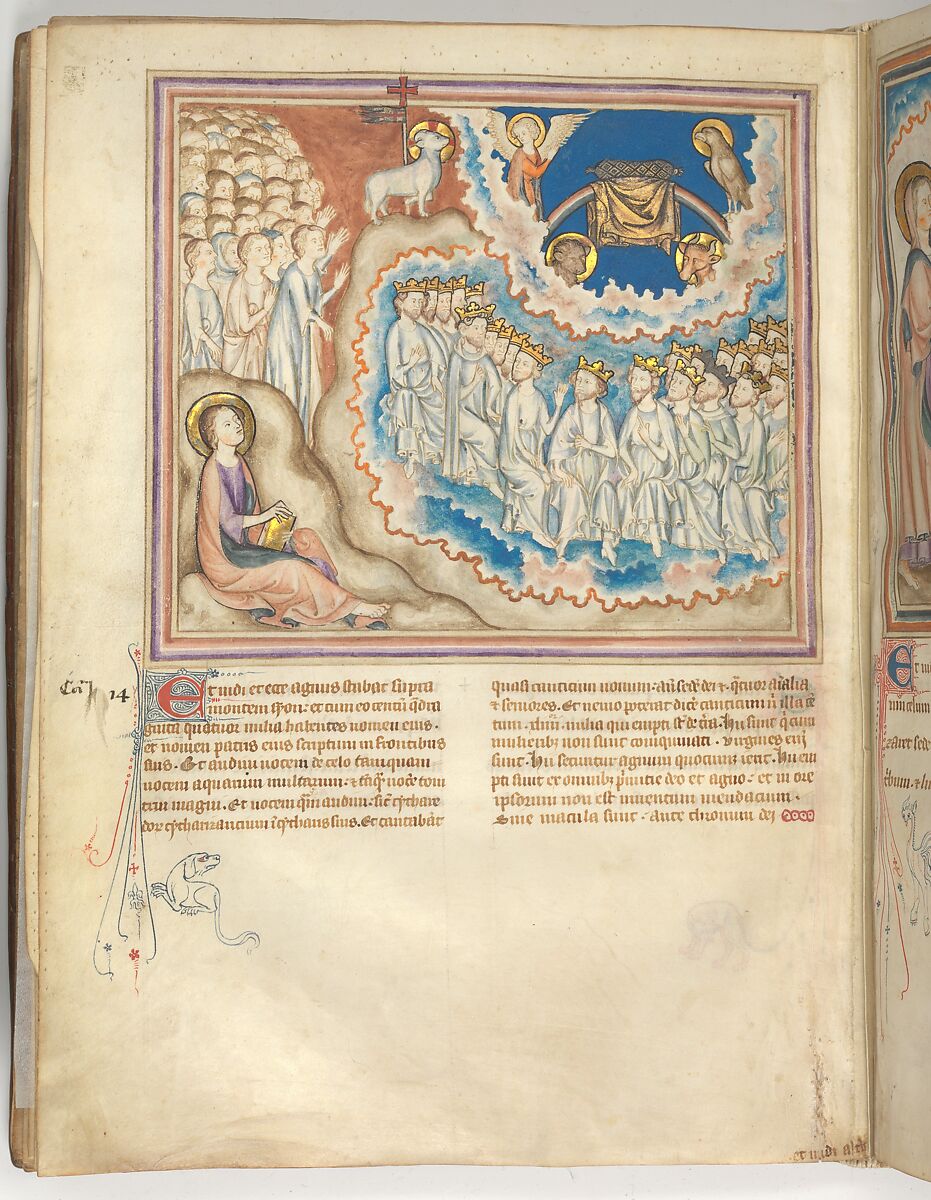 Ca^m 14
Et uidi et ecce agnus stabat supra
montem syon. et cum eo centū q̄dra
ginta quatuor milia habentes nomen eius.
et nomen patris eius scriptum in frontibus
suis. Et audiui uocem de celo tamquam
uocem aquarum multarum. ⁊ tāq̄ȝ uocē toni
trui magni. Et uocem q̄m audiui. sic̄ cythare
dor̄ cytharizantium ī cytharis suis. Et cantabāt
quasi canticum nouum. añ sedē dei ⁊. q̄tuor aīalia
⁊ seniores. Et nemo poterat dic̄e canticum n̄ illa cē
tum. milia qui empti st̄ de t̄ra. Hii sunt q̄ cum
mulieribȝ non sunt coinquinati. uirgines enī
sunt. Hii secuntur agnum quocunqȝ ierit. Hii em
pti sunt ex omnibȝ p̄mitie deo et agno. et in ore
ipsorum non est inuentum mendacium.
Sine macula sunt. Ante thronum dei
et uidi